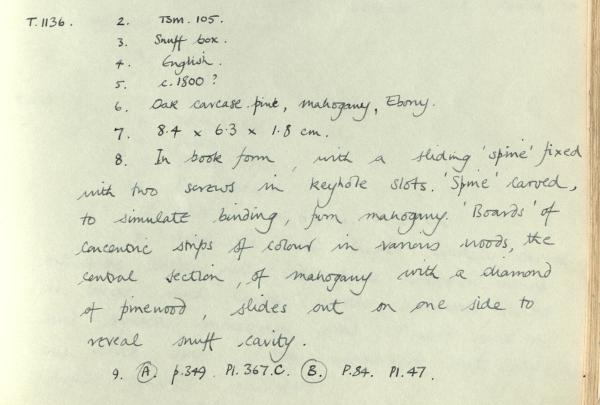 T.1136. 2. TSM. 105.
3. Snuff box.
4. English.
5. c.1800?
6. Oak carcase. pine, mahogany, Ebony.
7. 8.4 x 6.3 x 1.8 cm.
8. In book form, with a sliding 'spine' fixed
with two screws in keyhole slots. 'Spine' carved,
to simulate binding, from mahogany. 'Boards' of
concentric strips of colour in various woods, the
central section, of mahogany with a diamond
of pinewood, slides out on one side to
reveal snuff cavity.
9. A. p.349 Pl. 367.C. B. P.84. Pl.47.